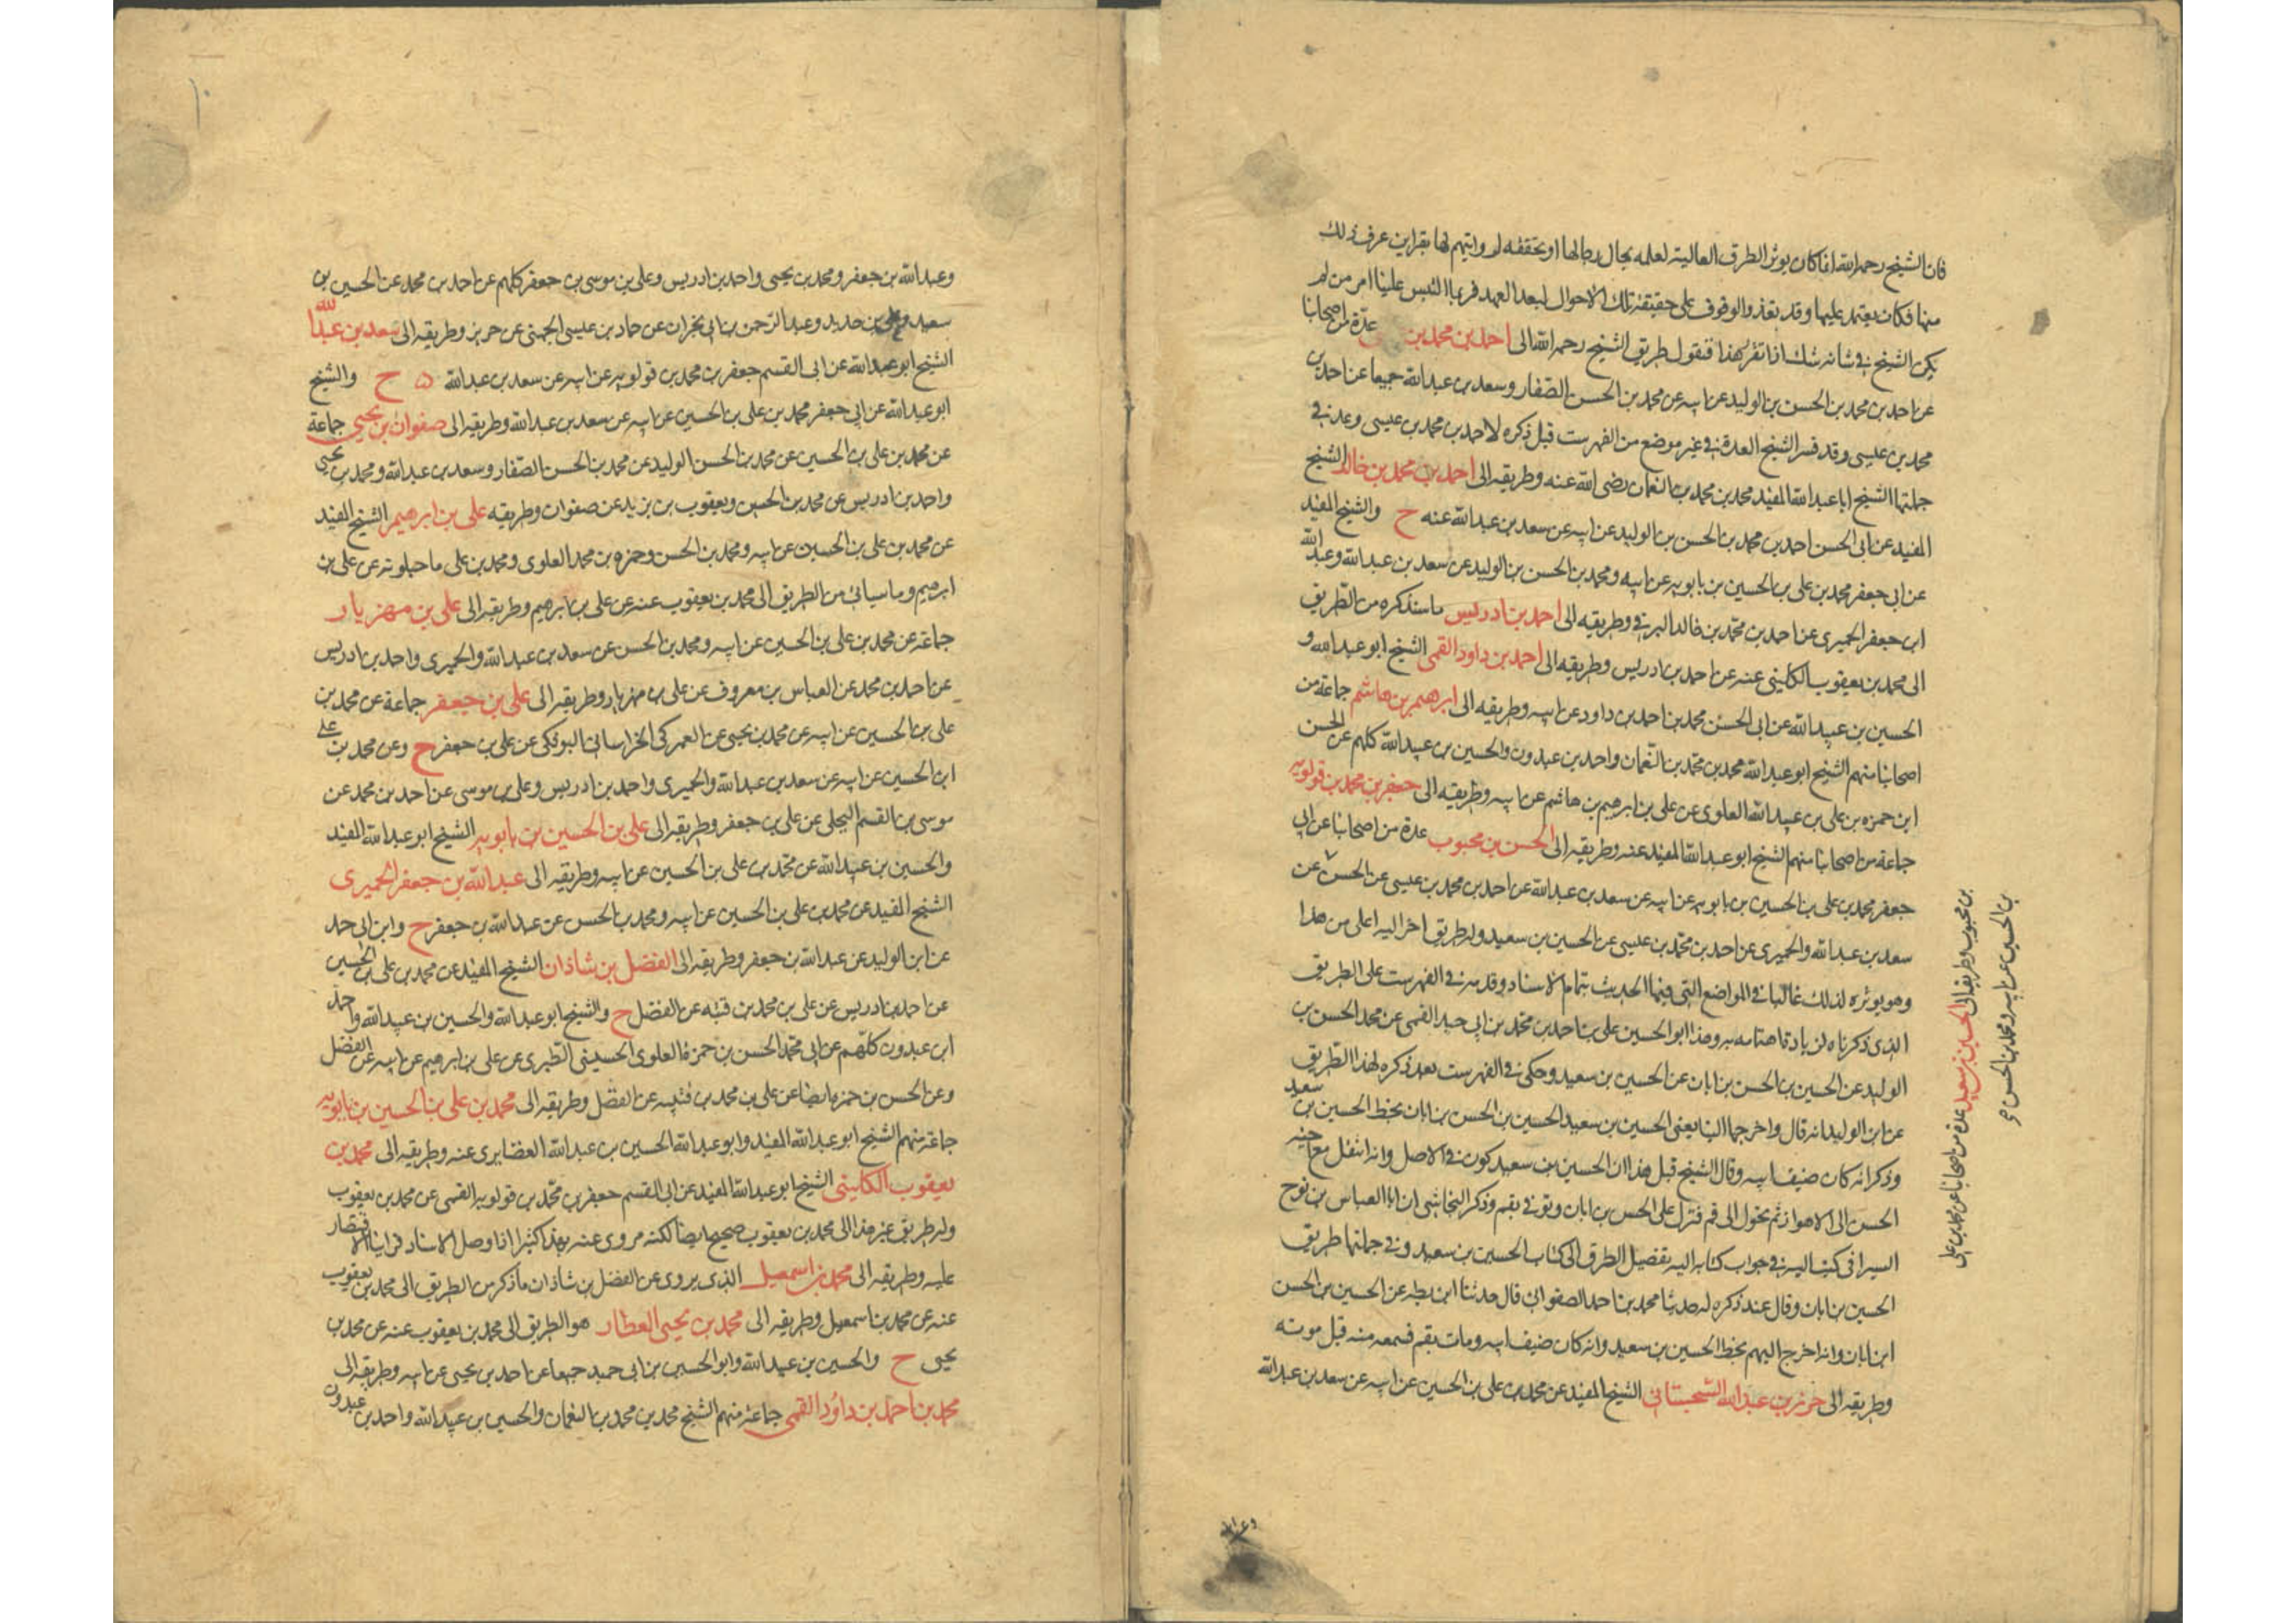 فان الشيخ رحمه الله انما كان يوثر الطرق العالية لعلمه بحال رجالها او تحققه لروايتهم لها بقراين عرف ذلك
منها فكان يعتمد عليها وقد تعذر الوقوف على حقيقة تلك الاحوال لبعد العهد فربما التبس علينا امر من لم
يكن الشيخ في شانه شك اذا تقرر هذا فنقول طريق الشيخ رحمه الله الى احمد بن محمد بن عدة من اصحابنا
عن احمد بن محمد بن الحسن بن الوليد عن ابيه عن محمد بن الحسن الصفار وسعد بن عبد الله جميعا عن احمد بن
محمد بن عيسى وقد فسر الشيخ العدة في غير موضع من الفهرست قبل ذكره لاحمد بن محمد بن عيسى وعد في
جملتها الشيخ ابا عبد الله المفيد محمد بن محمد بن النعمان رضى الله عنه وطريقه الى احمد بن محمد بن خالد الشيخ
المفيد عن ابى الحسن احمد بن محمد بن الحسن بن الوليد عن ابيه عن سعد بن عبد الله عنه ح والشيخ المفيد
عن ابى جعفر محمد بن على بن الحسين بن بابويه عن ابيه ومحمد بن الحسن بن الوليد عن سعد بن عبد الله وعبد الله
ابن جعفر الحميرى عن احمد بن محمد بن خالد البرقي وطريقه الى احمد بن ادريس ما سنذكره من الطريق
الى محمد بن يعقوب الكلينى عنه عن احمد بن ادريس وطريقه الى احمد بن داود القمى الشيخ ابو عبد الله و
الحسين بن عبيد الله عن ابى الحسن محمد بن احمد بن داود عن ابيه وطريقه الى ابرهيم بن هاشم جماعة من
اصحابنا منهم الشيخ ابو عبد الله محمد بن محمد بن النعمان واحمد بن عبدون والحسين بن عبيد الله كلهم عن الحسن
ابن حمزه بن على بن عبيد الله العلوى عن على بن ابرهيم بن هاشم عن ابيه وطريقه الى جعفر بن محمد بن قولويه
جماعة من اصحابنا منهم الشيخ ابو عبد الله المفيد عنه وطريقه الى الحسن بن محبوب عدة من اصحابنا عن ابى
جعفر محمد بن على بن الحسين بن بابويه عن ابيه عن سعد بن عبد الله عن احمد بن محمد بن عيسى عن الحسن عن
سعد بن عبد الله والحميرى عن احمد بن محمد بن عيسى عن الحسين بن سعيد وله طريق اخر اليه اعلى من هذا
وهو يوثره لذلك غالبا في المواضع التى فيها الحديث بتمام الاسناد وقدمه في الفهرست على الطريق
الذى ذكرناه لزيادة اهتمامه به وهذا ابو الحسين على بن احمد بن محمد بن ابي جيد القمى عن محمد الحسن بن
الوليد عن الحسين بن الحسن بن ابان عن الحسين بن سعيد وحكى في الفهرست بعد ذكره لهذا الطريق
عن ابن الوليد انه قال واخرجها الينا يعنى الحسين بن سعيد الحسين بن الحسن بن ابان بخط الحسين بن سعيد
وذكر انه كان ضيف ابيه وقال الشيخ قبل هذا ان الحسين بن سعيد كوفى الاصل وانه انتقل مع اخيه
الحسن الى الاهواز ثم تحول الى قم فنزل على الحسن بن ابان وتوفي بقم وذكر النجاشى ان ابا العباس بن نوح
السيرافى كتب اليه في جواب كتابه اليه بتفصيل الطرق الى كتاب الحسين بن سعيد وفي جملتها طريق
الحسين بن ابان وقال عند ذكره له حدثنا محمد بن احمد الصفوانى قال حدثنا ابن بطه عن الحسين بن الحسن
ابن ابان وانه اخرج اليهم بخط الحسين بن سعيد وانه كان ضيف ابيه ومات بقم فسمعه منه قبل موته
وطريقه الى حريز بن عبد الله السجستانى الشيخ المفيد عن محمد بن على بن الحسين عن ابيه عن سعد بن عبد الله
بن محبوب وطريقه الى الحسين بن سعيد عدة من اصحابنا عن محمد بن على
بن الحسين عن ابيه ومحمد بن الحسن
وعبد الله
وعبد الله بن جعفر ومحمد بن يحيى واحمد بن ادريس وعلى بن موسى بن جعفر كلهم عن احمد بن محمد عن الحسين بن
سعيد وعلى بن حديد وعبد الرحمن بن ابى نجران عن حماد بن عيسى الجهنى عن حريز وطريقه الى سعد بن عبد الله
الشيخ ابو عبد الله عن ابى القسم جعفر بن محمد بن قولويه عن ابيه عن سعد بن عبد الله ح والشيخ
ابو عبد الله عن ابى جعفر محمد بن على بن الحسين عن ابيه عن سعد بن عبد الله وطريقه الى صفوان بن يحيى جماعة
عن محمد بن على بن الحسين عن محمد بن الحسن الوليد عن محمد بن الحسن الصفار وسعد بن عبد الله ومحمد بن يحيى
واحمد بن ادريس عن محمد بن الحسين ويعقوب بن يزيد عن صفوان وطريقه على بن ابرهيم الشيخ المفيد
عن محمد بن على بن الحسين عن ابيه ومحمد بن الحسن وحمزه بن محمد العلوى ومحمد بن على ماجيلويه عن على بن
ابرهيم وما سياتى من الطريق الى محمد بن يعقوب عنه عن على بن ابرهيم وطريقه الى على بن مهزيار
جماعة عن محمد بن على بن الحسين عن ابيه ومحمد بن الحسن عن سعد بن عبد الله والحميرى واحمد بن ادريس
عن احمد بن محمد عن العباس بن معروف عن على بن مهزيار وطريقه الى على بن جعفر جماعة عن محمد بن
على بن الحسين عن ابيه عن محمد بن يحيى عن العمركى الخراسانى البوفكى عن على بن جعفر ح وعن محمد بن على
ابن الحسين عن ابيه عن سعد بن عبد الله والحميرى واحمد بن ادريس وعلى بن موسى عن احمد بن محمد عن
موسى بن القسم البجلى عن على بن جعفر وطريقه الى على بن الحسين بن بابويه الشيخ ابو عبد الله المفيد
والحسين بن عبيد الله عن محمد بن على بن الحسين عن ابيه وطريقه الى عبد الله بن جعفر الحميرى
الشيخ المفيد عن محمد بن على بن الحسين عن ابيه ومحمد بن الحسن عن عبد الله بن جعفر ح وابن ابى جيد
عن ابن الوليد عن عبد الله بن جعفر وطريقه الى الفضل بن شاذان الشيخ المفيد عن محمد بن على بن الحسين
عن احمد بن ادريس عن على بن محمد بن قتيبه عن الفضل ح والشيخ ابو عبد الله والحسين بن عبيد الله واحمد
ابن عبدون كلهم عن ابى محمد الحسن بن حمزة العلوى الحسينى الطبرى عن على بن ابرهيم عن ابيه عن الفضل
وعن الحسن بن حمزه ايضا عن على بن محمد بن قتيبه عن الفضل وطريقه الى محمد بن على بن الحسين بن بابويه
جماعة منهم الشيخ ابو عبد الله المفيد وابو عبد الله الحسين بن عبد الله الغضايرى عنه وطريقه الى محمد بن
يعقوب الكلينى الشيخ ابو عبد الله المفيد عن ابى القسم جعفر بن محمد بن قولويه القمى عن محمد بن يعقوب
وله طريق غير هذا الى محمد بن يعقوب صحيح ايضا لكنه مروى عنه بهذا كثيرا اذا وصل الاسناد فراينا الاقتصار
عليه وطريقه الى محمد بن اسمعيل الذى يروى عن الفضل بن شاذان ما ذكر من الطريق الى محمد بن يعقوب
عنه عن محمد بن اسمعيل وطريقه الى محمد بن يحيى العطار هو الطريق الى محمد بن يعقوب عنه عن محمد بن
يحيى ح والحسين بن عبيد الله وابو الحسين بن ابى جيد جميعا عن احمد بن يحيى عن ابيه وطريقه الى
محمد بن احمد بن داود القمى جماعة منهم الشيخ محمد بن محمد بن النعمان والحسين بن عبيد الله واحمد بن عبدون